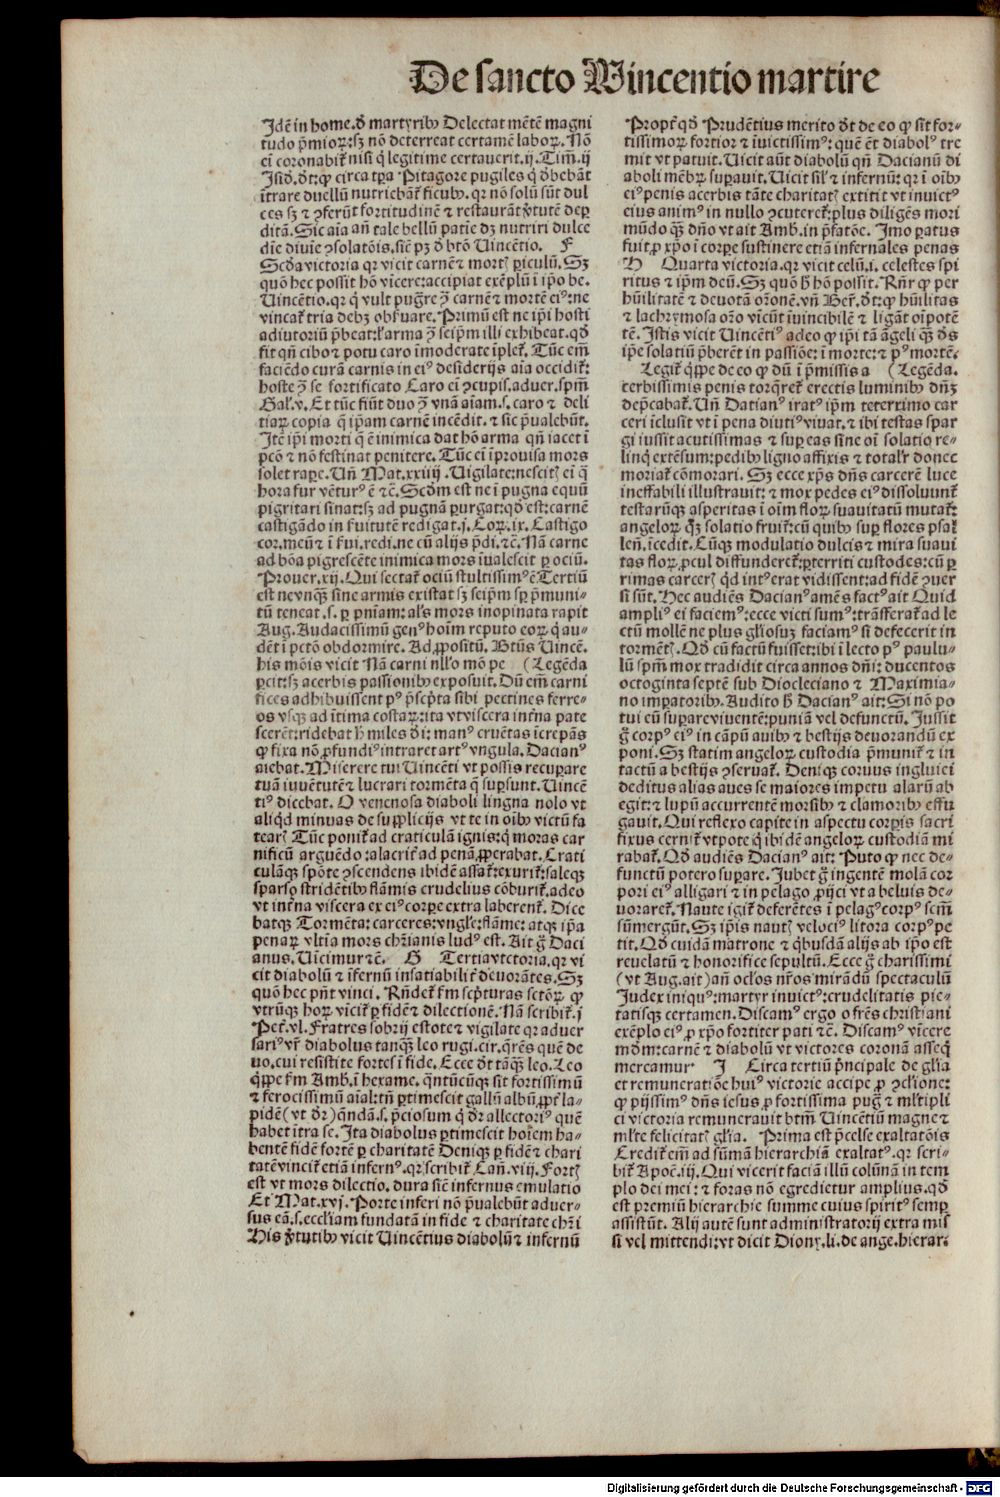 De sancto Vincentio martire
Jdē in home. de martyribꝰ Delectat mētē magni
tudo p̄mioꝝ: sꝫ nō deterreat certamē laboꝝ. Nō
eī coronabit̃ nisi q̇ legitime certauerit. ij. Tim̄. ij
Jsid. dt: ꝙ circa tp̄a Pitagore pugiles q̇ debebāt
ītrare duellū nutriebāt̃ ficubꝰ. qr nō solū sūt dul
ces sꝫ ⁊ ꝯferūt fortitudinē ⁊ restaurāt v̓tutē deꝑ
ditā. Sic aīa an̄ tale bellū patie dꝫ nutriri dulce
dīe diuīe ꝯsolatōis. sic̄ pꝫ d̓ btō Uincētio. F
Scd̓a victoria qr vicit carnē ⁊ mortꝭ ꝑiculū. Sꝫ
quō hec possit hō vīcere: accipiat exēplū ī ip̄o be.
Uincētio. qr q̇ vult pugr̄e ꝯ̄ carnē ⁊ mortē eiꝰ: ne
vincat̃ tria debꝫ obs̓uare. Primū est ne ip̄i hosti
adiutoriū p̄beat: ł arma ꝯ̄ seip̄m illi exhibeat. qd̓
fit qn̄ cibo ⁊ potu caro īmoderate īplet̃. Tūc em̄
faciēdo curā carnis in eiꝰ desiderijs aīa occidit̃:
hoste ꝯ̄ se fortificato Caro eī ꝯcupis. aduer. spm̄
Gal. v. Et tūc fiūt duo ꝯ̄ vnā aīam. s. caro ⁊ deli
tiaꝝ copia q̇ ip̄am carnē incēdit. ⁊ sic p̄ualebūt.
Jtē ip̄i morti q̇ ē inimica dat hō arma qn̄ iacet ī
pc̄ō ⁊ nō festinat penitere. Tūc eī īprouisa mors
solet rape. Un̄ Mat. xxiiij. Uigilate: nescitꝭ eī q̇
hora fur vētur̄ꝰ ē ⁊c̄. Scd̓m est ne ī pugna equū
pigritari sinat: sꝫ ad pugnā ꝑurgat: qd̓ est: carnē
castigādo in s̓uitutē redigat. j. Cor. ix. Castigo
cor. meū ⁊ ī s̓ui. redi. ne cū alijs p̄di. ⁊c̄. Nā carne
ad bōa pigrescēte inimica mors īualescit ꝑ ociū.
Prouer. xij. Qui sectat̃ ociū stultissimꝰ ē Tertiū
est ne vnqꝫ sine armis existat sꝫ seip̄m sꝑ p̄muni-
tū teneat. s. ꝑ pn̄iam: als̄ mors inopinata rapit
Aug. Audacissimū genꝰ hoīm reputo eoꝝ q̇ au-
dēt ī pctō obdormire. Ad ꝓpositū. Btūs Uincē.
his mōis vicit Nā carni nll̓o mō pe (Legēda
ꝑcit: sꝫ acerbis passionibꝰ exposuit. Dū em̄ carni
fices adhibuissent pꝰ p̄sc̓pta sibi pectines ferre-
os vsqꝫ ad ītima costaꝝ: ita vt viscera int̃na pate
scerēt: ridebat h̓ miles d̓i: manꝰ cruētas īcrepās
ꝙ fixa nō ꝓfundiꝰ intraret artꝰ vngula. Dacianꝰ
aiebat. Miserere tui Uincēti vt possis recuꝑare
tuā iuuētutē ⁊ lucrari tormēta q̇ suꝑsunt. Uincē
tiꝰ dicebat. O venenosa diaboli lingua nolo vt
aliqd̓ minuas de supplicijs vt te in oībꝰ victū fa
tearꝭ Tūc ponit̃ ad craticulā ignis: q̇ moras car
nificū arguēdo: alacrit̃ ad penā ꝓperabat. Crati
culāqꝫ spōte ꝯscendens ibidē assat̃: exurit̃: saleqꝫ
sparso stridētibꝰ flāmis crudelius cōburit̃. adeo
vt int̃na viscera ex eiꝰ corꝑe extra laberent̃. Dice
batqꝫ Tormēta: carceres: vngle: flāme: atqꝫ ip̄a
penaꝝ vltīa mors chr̄ianis ludꝰ est. Ait g̓ Daci
anus. Uicimur ⁊c̄. G Tertia vctoria. qr vi
cit diabolū ⁊ īfernū insatiabilit̃ deuorātes. Sꝫ
quō hec pn̄t vinci. Rn̄det̃ s̓m sc̓pturas sctōꝝ ꝙ
vtrūqꝫ hoꝝ vicit̃ ꝑ fidē ⁊ dilectionē. Nā scribit̃. j
Pet̃. vl. Fratres sobrij estote ⁊ vigilate qr aduer
sariꝰ vr̄ diabolus tanqꝫ leo rugi. cir. q̄rēs quē de
uo. cui resistite fortes ī fide. Ecce d̓t tāqꝫ leo. Leo
qͥppe s̓m Amb. ī hexame. qn̄tūcūqꝫ sit fortissimū
⁊ ferocissimū aīal: tn̄ ꝑtimescit gallū albū ꝓpt̃ la-
pidē (vt d̓r) qn̄dā. s. p̄ciosum q̇ d̓r allectoriꝰ quē
habet ītra se. Jta diabolus ꝑtimescit hoīem ha-
bentē fidē fortē ꝑ charitatē Deniqꝫ ꝑ fidē ⁊ chari
tatē vincit̃ etiā infernꝰ. qr scribit̃ Can̄. viij. Fortꝭ
est vt mors dilectio. dura sic̄ infernus emulatio
Et Mat. xvj. Porte inferi nō p̄ualebūt aduer-
sus eā. s. eccl̓iam fundatā in fide ⁊ charitate chr̄i
His v̓tutibꝰ vicit Uincētius diabolū ⁊ infernū
Propt̃ qd̓ Prudētius merito d̓t de eo ꝙ sit for-
tissimoꝝ fortior ⁊ īuictissimꝰ: quē ēt diabolꝰ tre
mit vt patuit. Uicit aūt diabolū qn̄ Dacianū di
aboli mēbꝝ suꝑauit. Uicit sil̓ ⁊ infernū: qr ī oībꝰ
eiꝰ penis acerbis tāte charitatꝭ extitit vt inuictꝰ
eius animꝰ in nullo ꝯcuteret̃: plus diligēs mori
mūdo qꝫ dn̄o vt ait Amb. in p̄fatōe. Jmo ꝑatus
fuit ꝓ xp̄o ī corꝑe sustinere etiā infernales penas
H Quarta victoria. qr vicit celū. i. celestes spi
ritus ⁊ ip̄m deū. Sꝫ quō h̓ hō possit. Rn̄r ꝙ per
hūilitatē ⁊ deuotā orōnē. vn̄ Ber. d̓t: ꝙ hūilitas
⁊ lachrymosa or̄o vīcūt īuincibilē ⁊ ligāt oīpotē
tē. Jstis vicit Uincētiꝰ adeo ꝙ ip̄i tā āgeli qꝫ d̓s
ip̄e solatiū p̄berēt in passiōe: ī morte: ⁊ pꝰ mortē.
Legit̃ qͥppe de eo ꝙ dū ī p̄missis a (Legēda.
cerbissimis penis torq̄ret̃ erectis luminibꝰ dn̄ꝫ
dep̄cabat̃. Un̄ Datianꝰ iratꝰ ip̄m teterrimo car
ceri īclusit vt ī pena diutiꝰ viuat. ⁊ ibi testas spar
gi iussit acutissimas ⁊ suꝑ eas sīne oī solatio re-
linq̄ extēsum: pedibꝰ ligno affixis ⁊ totalr̄ donec
moriat̃ cōmorari. Sꝫ ecce xp̄s dn̄s carcerē luce
ineffabili illustrauit: ⁊ mox pedes eiꝰ dissoluunt̃
testarūqꝫ asperitas ī oīm floꝝ suauitatū mutat̃:
angeloꝝ qꝫ solatio fruit̃: cū quibꝰ suꝑ flores psal
len̄. īcedit. Cūqꝫ modulatio dulcis ⁊ mira suaui
tas floꝝ. ꝓcul diffunderet̃: ꝑterriti custodes: cū ꝑ
rimas carcerꝭ qd̓ int̃erat vidissent: ad fidē ꝯuer
si sūt. Hec audiēs Dacianꝰ amēs factꝰ ait Quid
ampliꝰ ei faciemꝰ: ecce victi sumꝰ: trāsferat̃ ad le
ctū mollē ne plus gl̓iosuꝫ faciamꝰ si defecerit in
tormētꝭ. Qd̓ cū factū fuisset: ibi ī lecto pꝰ paulu-
lū spm̄ mox tradidit circa annos dn̄i: ducentos
octoginta septē sub Diocleciano ⁊ Maximia-
no imꝑatoribꝰ. Audito h̓ Dacianꝰ ait: Si nō po
tui eū suꝑare viuentē: puniā vel defunctū. Jussit
g̓ corpꝰ eiꝰ in cāpū auibꝰ ⁊ bestijs deuorandū ex
poni. Sꝫ statim angeloꝝ custodia p̄munit̃ ⁊ in
tactū a bestijs ꝯseruat̃. Deniqꝫ coruus ingluiei
deditus alias aues se maiores impetu alarū ab
egit: ⁊ lupū accurrentē morsibꝰ ⁊ clamoribꝰ effu
gauit. Qui reflexo capite in aspectu corꝑis sacri
fixus cernit̃ vtpote q̇ ibidē angeloꝝ custodiā mi
rabat̃. Qd̓ audiēs Dacianꝰ ait: Puto ꝙ nec de-
functū potero suꝑare. Jubet g̓ ingentē molā cor
pori eiꝰ alligari ⁊ in pelago ꝓijci vt a beluis de-
uoraret̃. Naute igit̃ deferētes ī pelagꝰ corpꝰ scm̄
sūmergūt. Sꝫ ip̄is nautꝭ velociꝰ litora corpꝰ pe
tit. Qd̓ cuidā matrone ⁊ qͥbusdā alijs ab ip̄o est
reuelatū ⁊ honorifice sepultū. Ecce g̓ charissimi
(vt Aug. ait) an̄ ocl̓os nr̄os mirādū spectaculū
Judex iniquꝰ: martyr inuictꝰ: crudelitatis pie-
tatisqꝫ certamen. Discamꝰ ergo o fr̄es christiani
exēplo eiꝰ ꝓ xp̄o fortiter pati ⁊c̄. Discamꝰ vīcere
md̓m: carnē ⁊ diabolū vt victores coronā asseq̇
mereamur. J Circa tertiū p̄ncipale de gl̓ia
et remuneratiōe huiꝰ victorie accipe ꝓ ꝯclione:
ꝙ pijssimꝰ dn̄s iesus ꝓ fortissima pug̓ ⁊ ml̓tipli
ci victoria remunerauit btm̄ Uincētiū magne ⁊
ml̓te felicitatꝭ gl̓ia. Prima est p̄celse exaltatōis
Credit̃ em̄ ad sūmā hierarchiā exaltatꝰ. qr scri-
bit̃ Apoc̄. iij. Qui vicerit faciā illū colūnā in tem
plo dei mei: ⁊ foras nō egredietur amplius. qd̓
est premiū hierarchie summe cuius spiritꝰ semꝑ
assistūt. Alij autē sunt administratorij extra mis
si vel mittendi: vt dicit Diony. li. de ange. hierar.
Digitalisierung gefördert durch die Deutsche Forschungsgemeinschaft - DFG